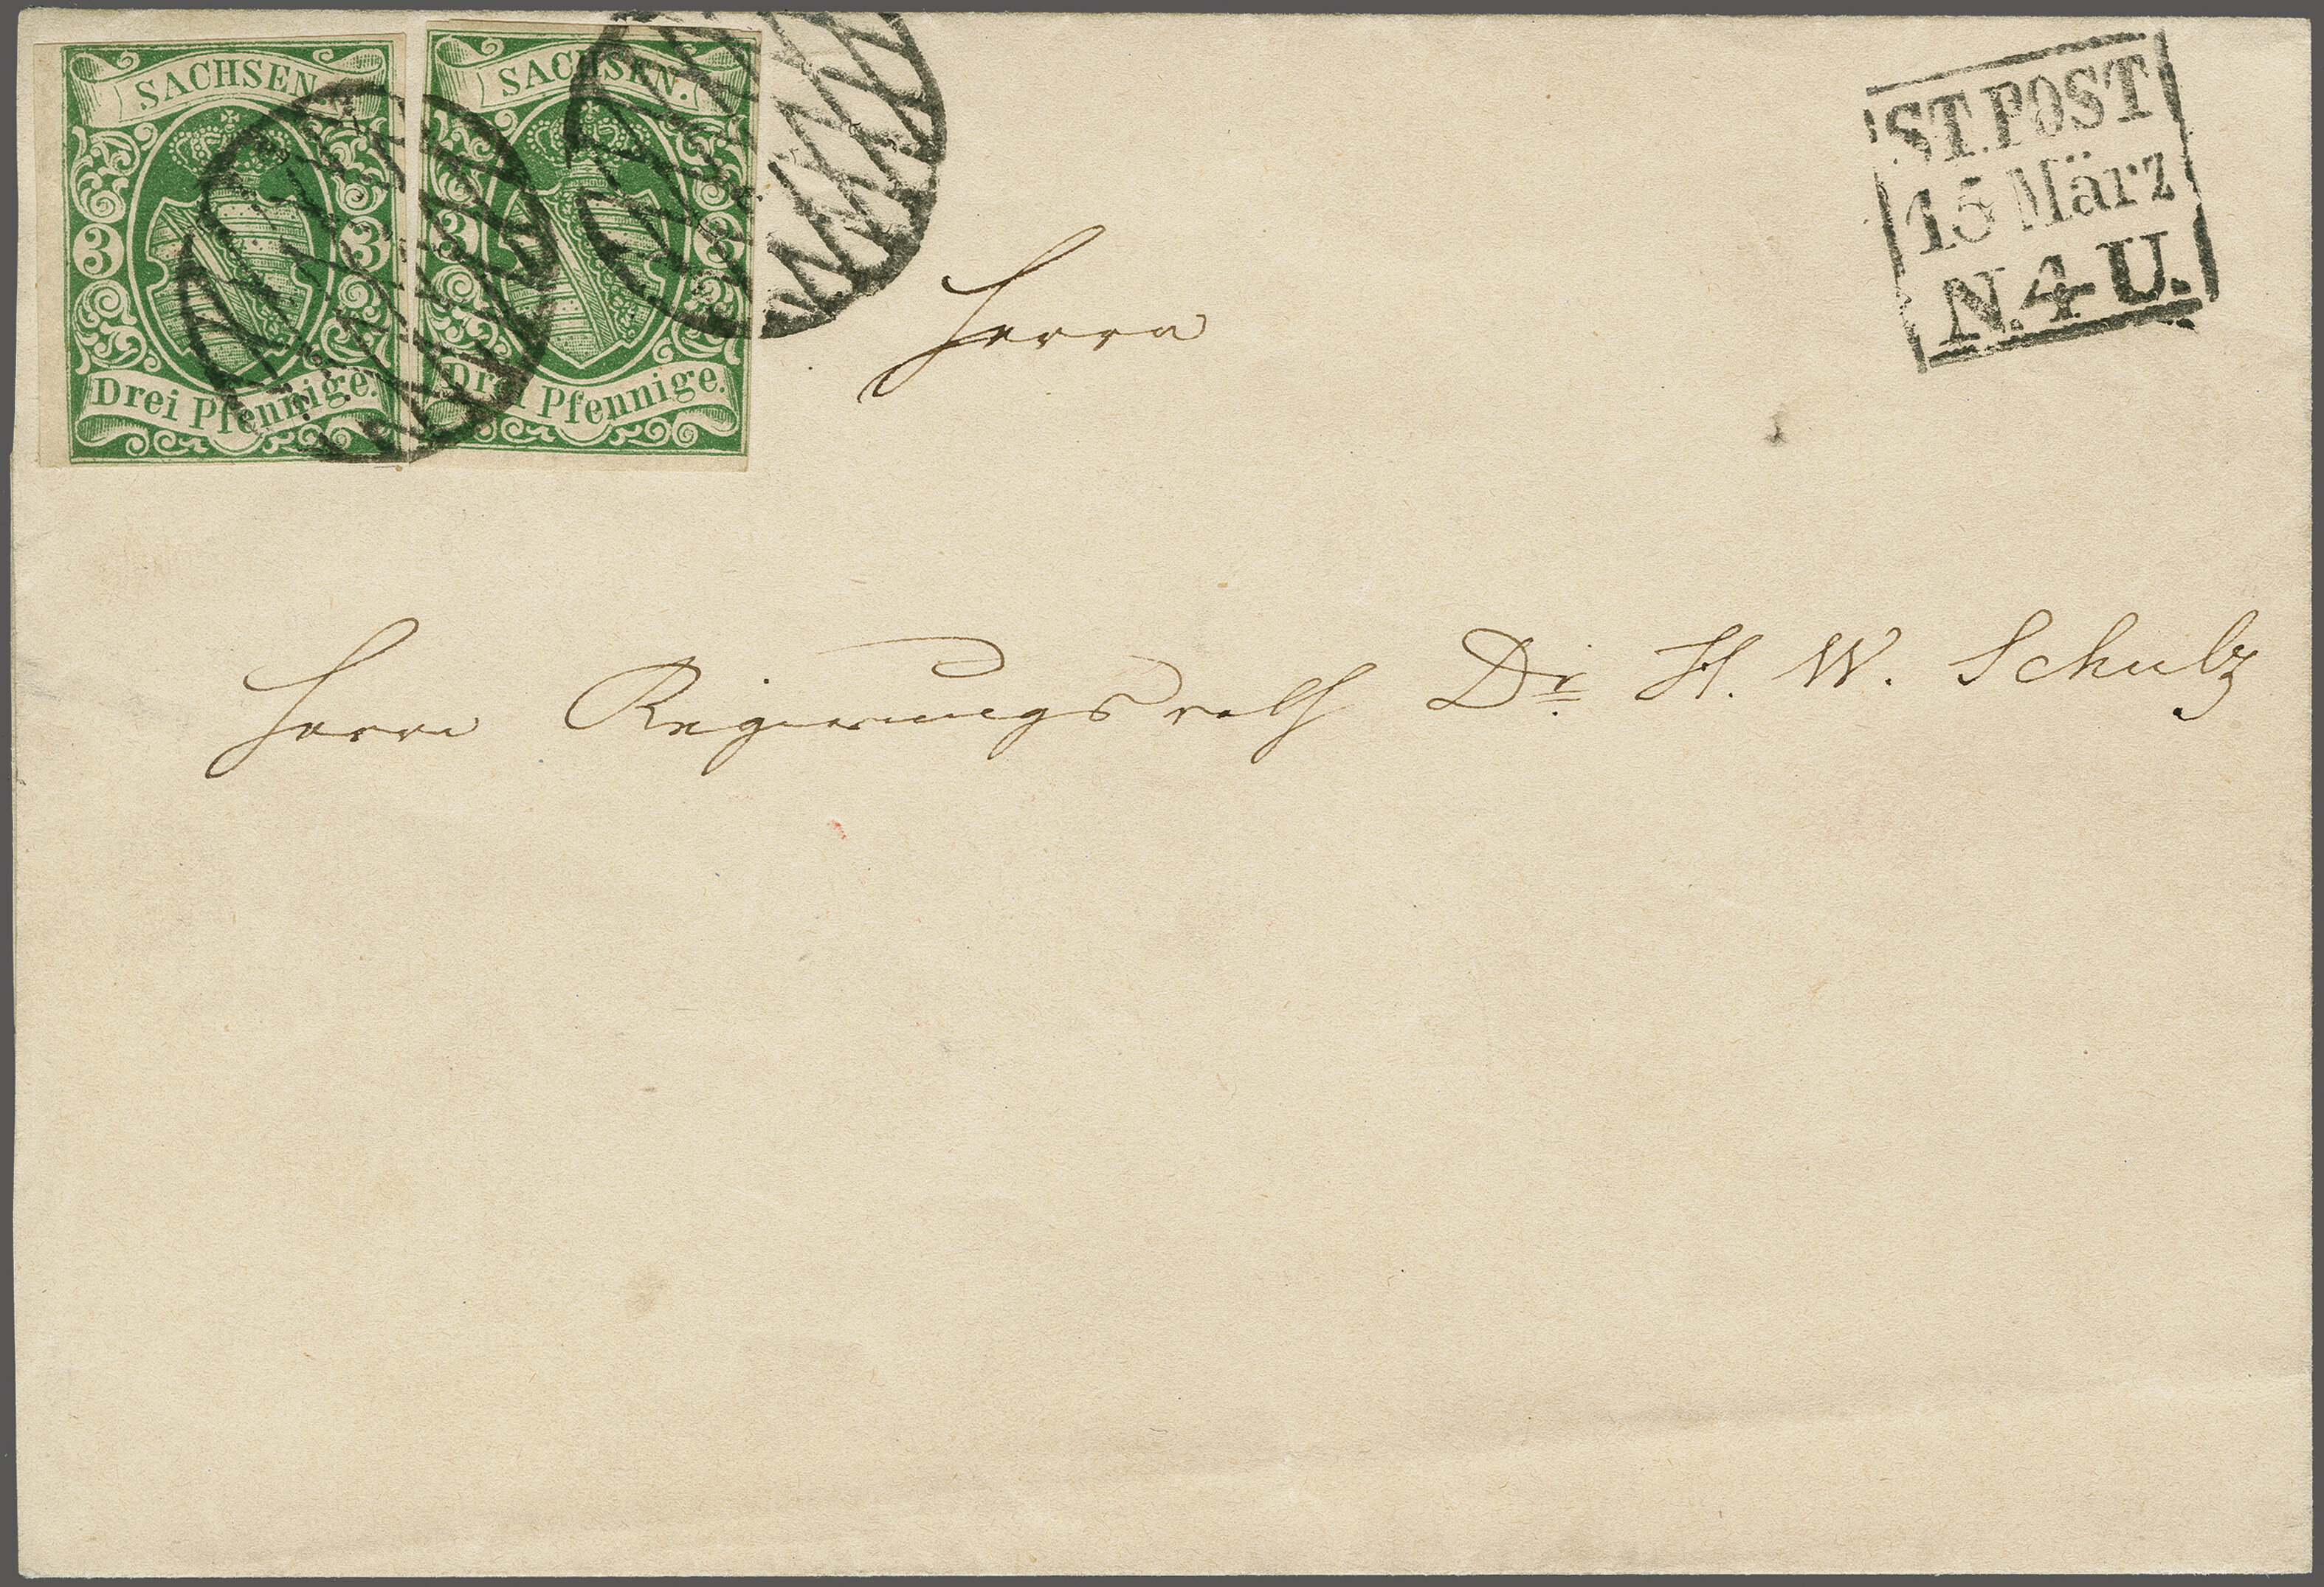 SACHSEN.
3 3
Drei Pfennige.
SACHSEN.
3 3
Drei Pfennige.
ST. POST
15 März
N. 4 U.
Herrn
Herrn Regierungsrath Dr. H. W. Schulz